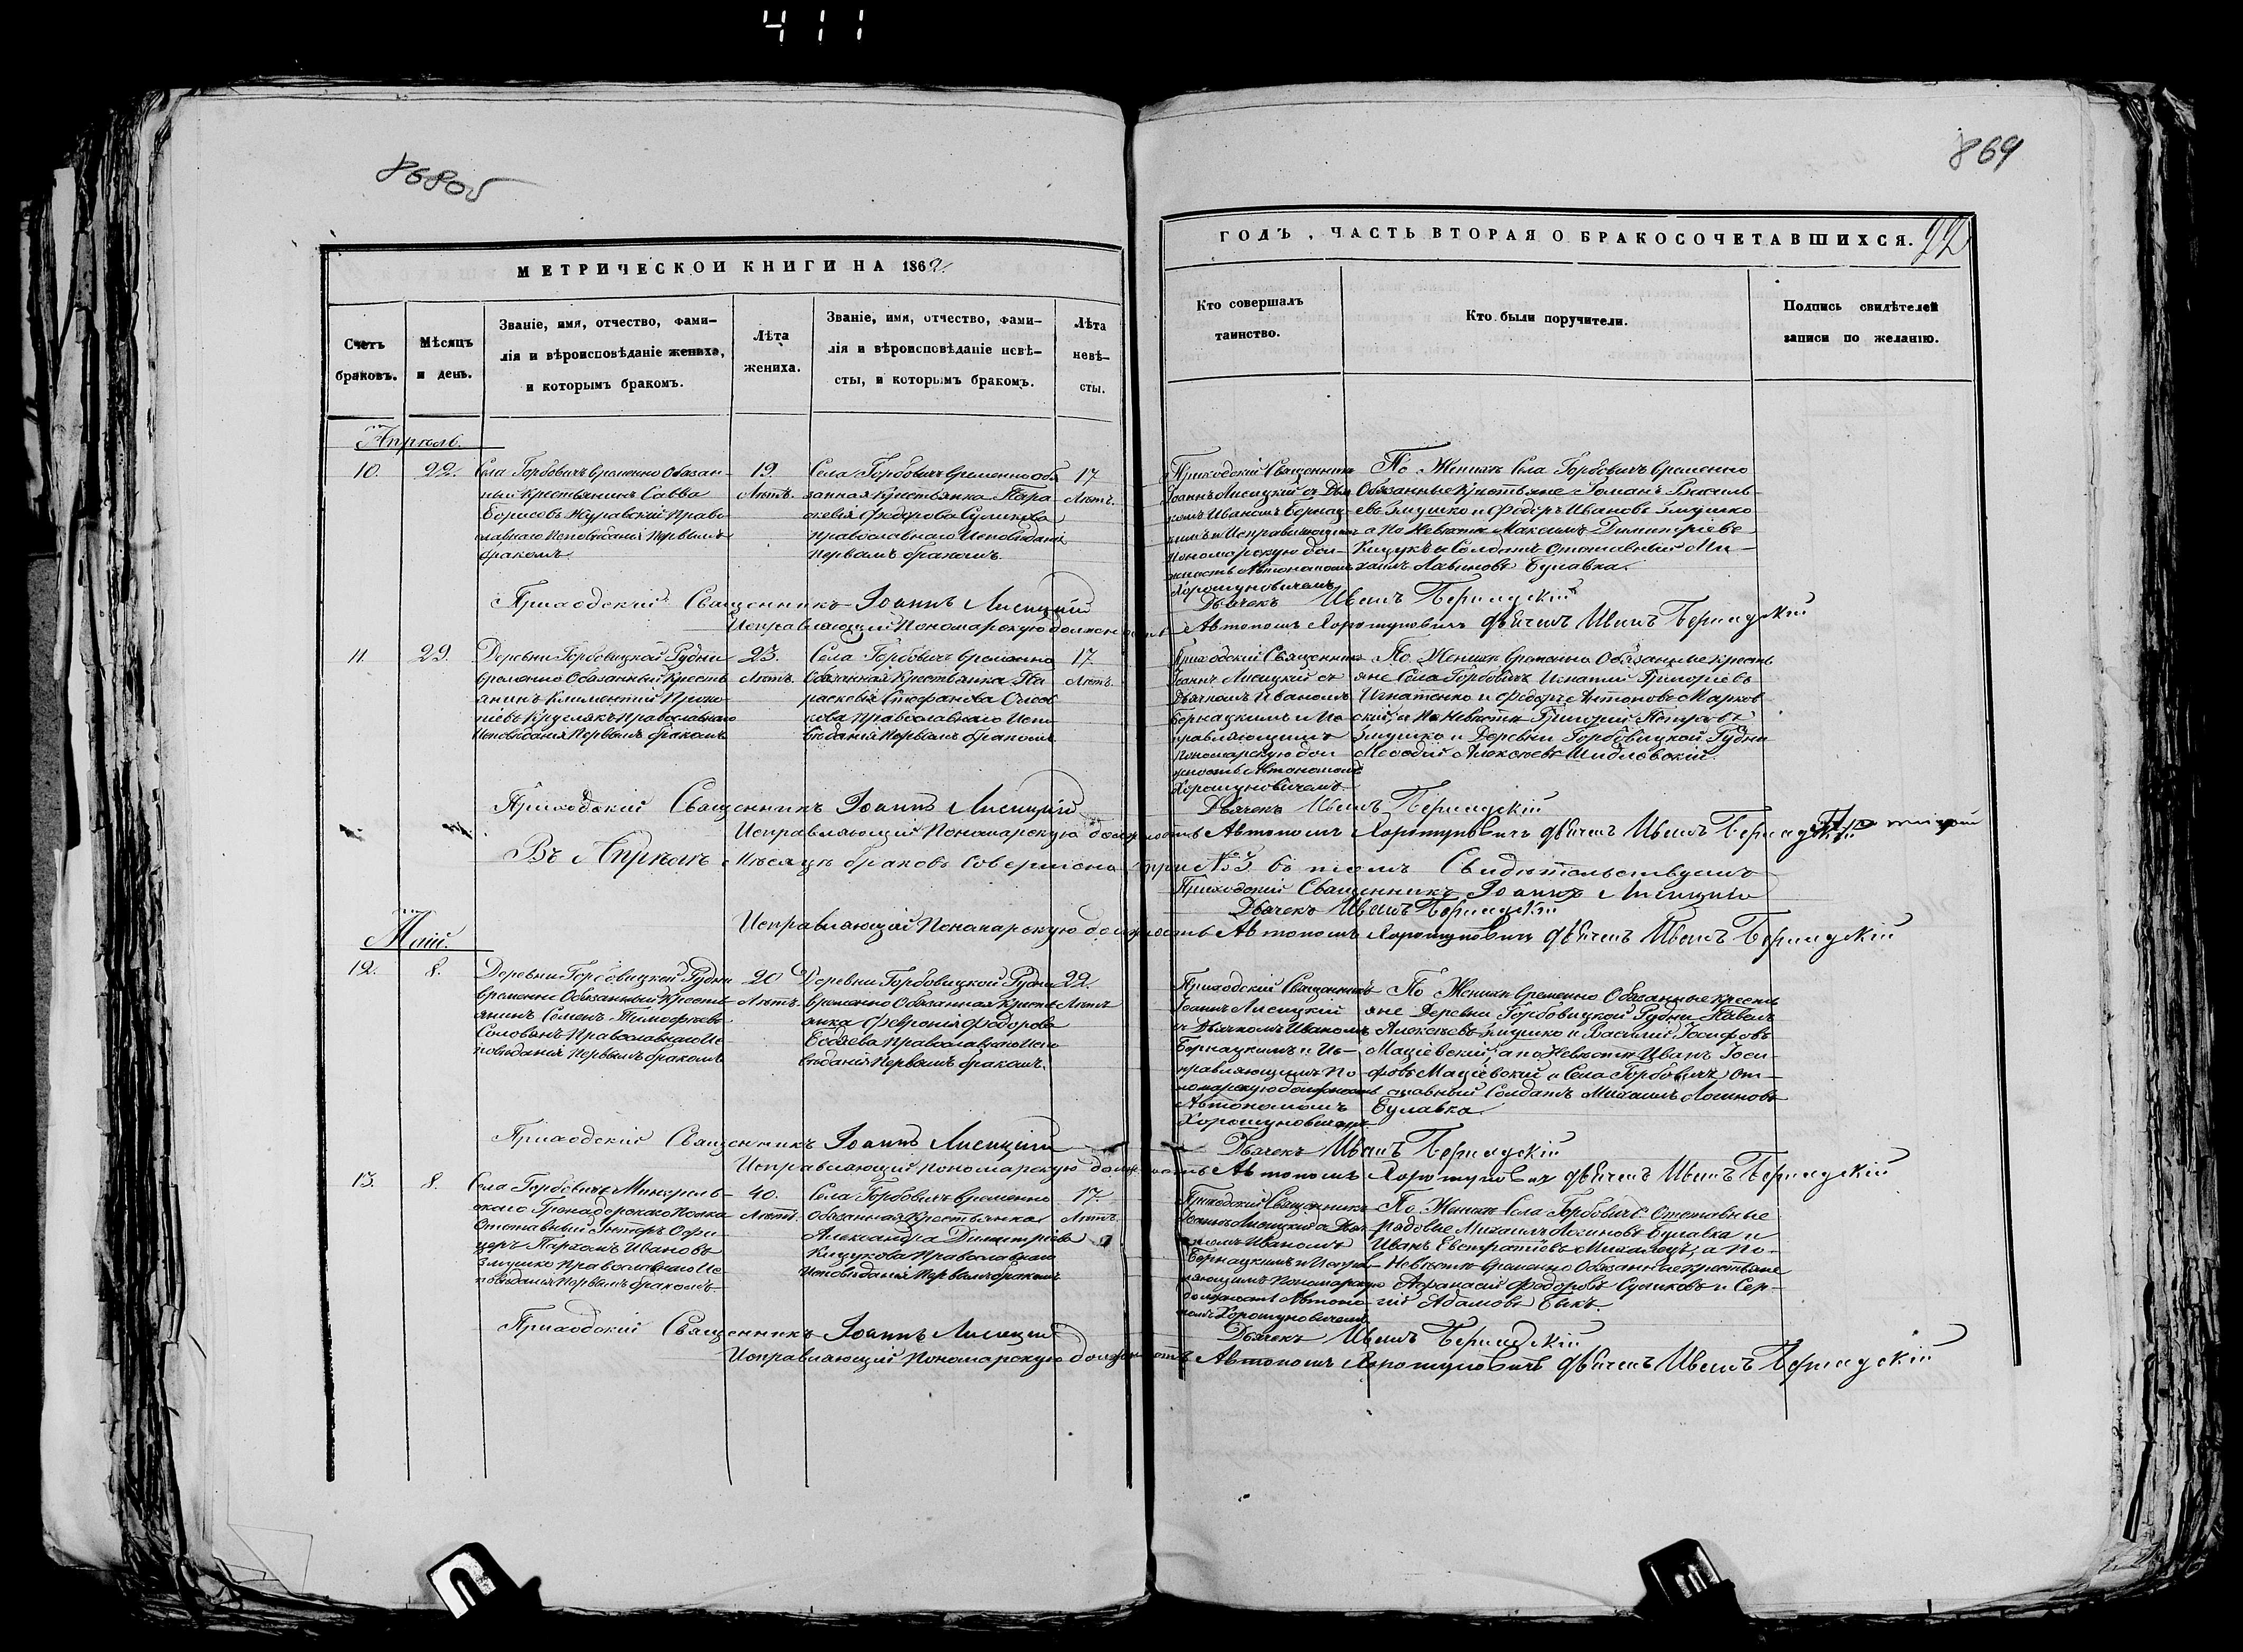 411
868об
869
22
МЕТРИЧЕСКОЙ КНИГИ НА 1862.
ГОДЪ, ЧАСТЬ ВТОРАЯ О БРАКОСОЧЕТАВШИХСЯ.
Счетъ
браковъ.
Мѣсяцъ
и день.
Званіе, имя, отчество, фами-
лія и вѣроисповѣданіе жениха,
и которымъ бракомъ.
Лѣта
жениха.
Званіе, имя, отчество, фами-
лія и вѣроисповѣданіе невѣ-
сты, и которымъ бракомъ.
Лѣта
невѣ-
сты.
Кто совершалъ
таинство.
Кто были поручители.
Подпись свидѣтелей
записи по желанію.
Апрель.
10.
22.
Села Горбовичъ временно обязан-
ный крестьянинъ Савва
Борисовъ Журавскій право-
славнаго исповѣданія первымъ
бракомъ
19
Лѣтъ.
Села Горбовичъ временно обя
занная крестьянка Пара
скевія Федорова Суликова
православнаго исповѣданія
первымъ бракомъ
17
Лѣтъ.
Приходскій Священникъ
Іоаннъ Лисицкій съ Дья
комъ Иваномъ Бернац-
кимъ и Исправляющимъ
пономарскую дол-
жность Автономомъ
Хорошуновичемъ
По Женихѣ Села Горбовичъ временно
обязанные крестьяне Романъ Василь-
евъ Змушко и Федоръ Ивановъ Змушко
а по Невѣстѣ Максимъ Димитріевъ
Кицукъ и Солдатъ отставный Ми-
хаилъ Логиновъ Булавка.
Приходскій Священникъ Іоаннъ Лисицкій
Дьячекъ Иванъ Бернадскій
Исправляющій Пономарскую должность Автономъ Хорошуновичъ Дьячекъ Иванъ Бернадскій
11.
29.
Деревни Горбовицкой Рудни
временно обязанный кресть
янинъ Климентій Проко-
піевъ Круглякъ православнаго
исповѣданія первымъ бракомъ
23.
Лѣтъ.
Села Горбовичъ временно
обязанная крестьянка Па
раскевія Стефанова
православнаго испо
вѣданія первымъ бракомъ
17
Лѣтъ.
Приходскій Священникъ
Іоаннъ Лисицкій съ
Дьячкомъ Иваномъ
Бернацкимъ и Ис-
правляющимъ
пономарскую дол
жность Автономомъ
Хорошуновичемъ.
По Женихѣ временно обязанные кресть
яне Села Горбовичъ Игнатій Григоріевъ
Игнатенко и Федоръ Антоновъ Марков
скій, а по Невѣстѣ Григорій Петровъ
Змушко и Деревни Горбовицкой Рудни
Мефодій Алексѣевъ Шидловскій.
Приходскій Священникъ Іоаннъ Лисицкій
Дьячекъ Иванъ Бернадскій
Исправляющій Пономарскую должность Автономъ Хорошуновичъ Дьячекъ Иванъ Бернадскій
Въ Апрѣлѣ Мѣсяцѣ браковъ совершено три №3 въ томъ Свидѣтельствуемъ
Приходскій Священникъ Іоаннъ Лисицкій
Дьячекъ Иванъ Бернадскій
Исправляющій Пономарскую должность Автономъ Хорошуновичъ Дьячекъ Иванъ Бернадскій
Май.
12.
8.
Деревни Горбовицкой Рудни
временно обязанный кресть
янинъ Семенъ Тимофѣевъ
Соловянъ православнаго ис
повѣданія первымъ бракомъ
20
Лѣтъ.
Деревни Горбовицкой Рудни
временно обязанная кресть
янка Февронія Федорова
православнаго испо
вѣданія первымъ бракомъ.
22.
Лѣтъ
Приходскій Священникъ
Іоаннъ Лисицкій
съ Дьячкомъ Иваномъ
Бернацкимъ и Ис-
правляющимъ по-
номарскую должность
Автономомъ
Хорошуновичемъ
По Женихѣ временно обязанные кресть
яне Деревни Горбовицкой Рудни Павелъ
Алексѣевъ Змушко и Василій Іосифовъ
Маціевскій, а по Невѣстѣ Иванъ Іоси-
фовъ Маціевскій и Села Горбовичъ от-
ставный Солдатъ Михаилъ Логиновъ
Булавка
Приходскій Священникъ Іоаннъ Лисицкій
Дьячекъ Иванъ Бернадскій
Исправляющій пономарскую должность Автономъ Хорошуновичъ Дьячекъ Иванъ Бернадскій
13.
8.
Села Горбовичъ Мингрель-
скаго Гренадерскаго Полка
Отставный Унтеръ Офи-
церъ Пархомъ Ивановъ
Змушко православнаго ис-
повѣданія первымъ бракомъ
40.
Лѣтъ.
Села Горбовичъ временно
обязанная крестьянка
Александра Димитріева
Кицукова православнаго
исповѣданія первымъ бракомъ
17.
Лѣтъ
Приходскій Священникъ
Іоаннъ Лисицкій съ Дья-
чкомъ Иваномъ
Бернацкимъ и Исправ-
ляющимъ пономарскую
должность Автоно-
момъ Хорошуновичемъ
По Женихѣ Села Горбовичъ Отставные
рядовые Михаилъ Логиновъ Булавка и
Иванъ Евстратіевъ а по-
Невѣстѣ временно обязанные крестьяне
Афанасій Федоровъ Суликовъ и Сер-
гій Адамовъ Быкъ.
Приходскій Священникъ Іоаннъ Лисицкій
Дьячекъ Иванъ Бернадскій
Исправляющій пономарскую должность Автономъ Хорошуновичъ Дьячекъ Иванъ Бернадскій